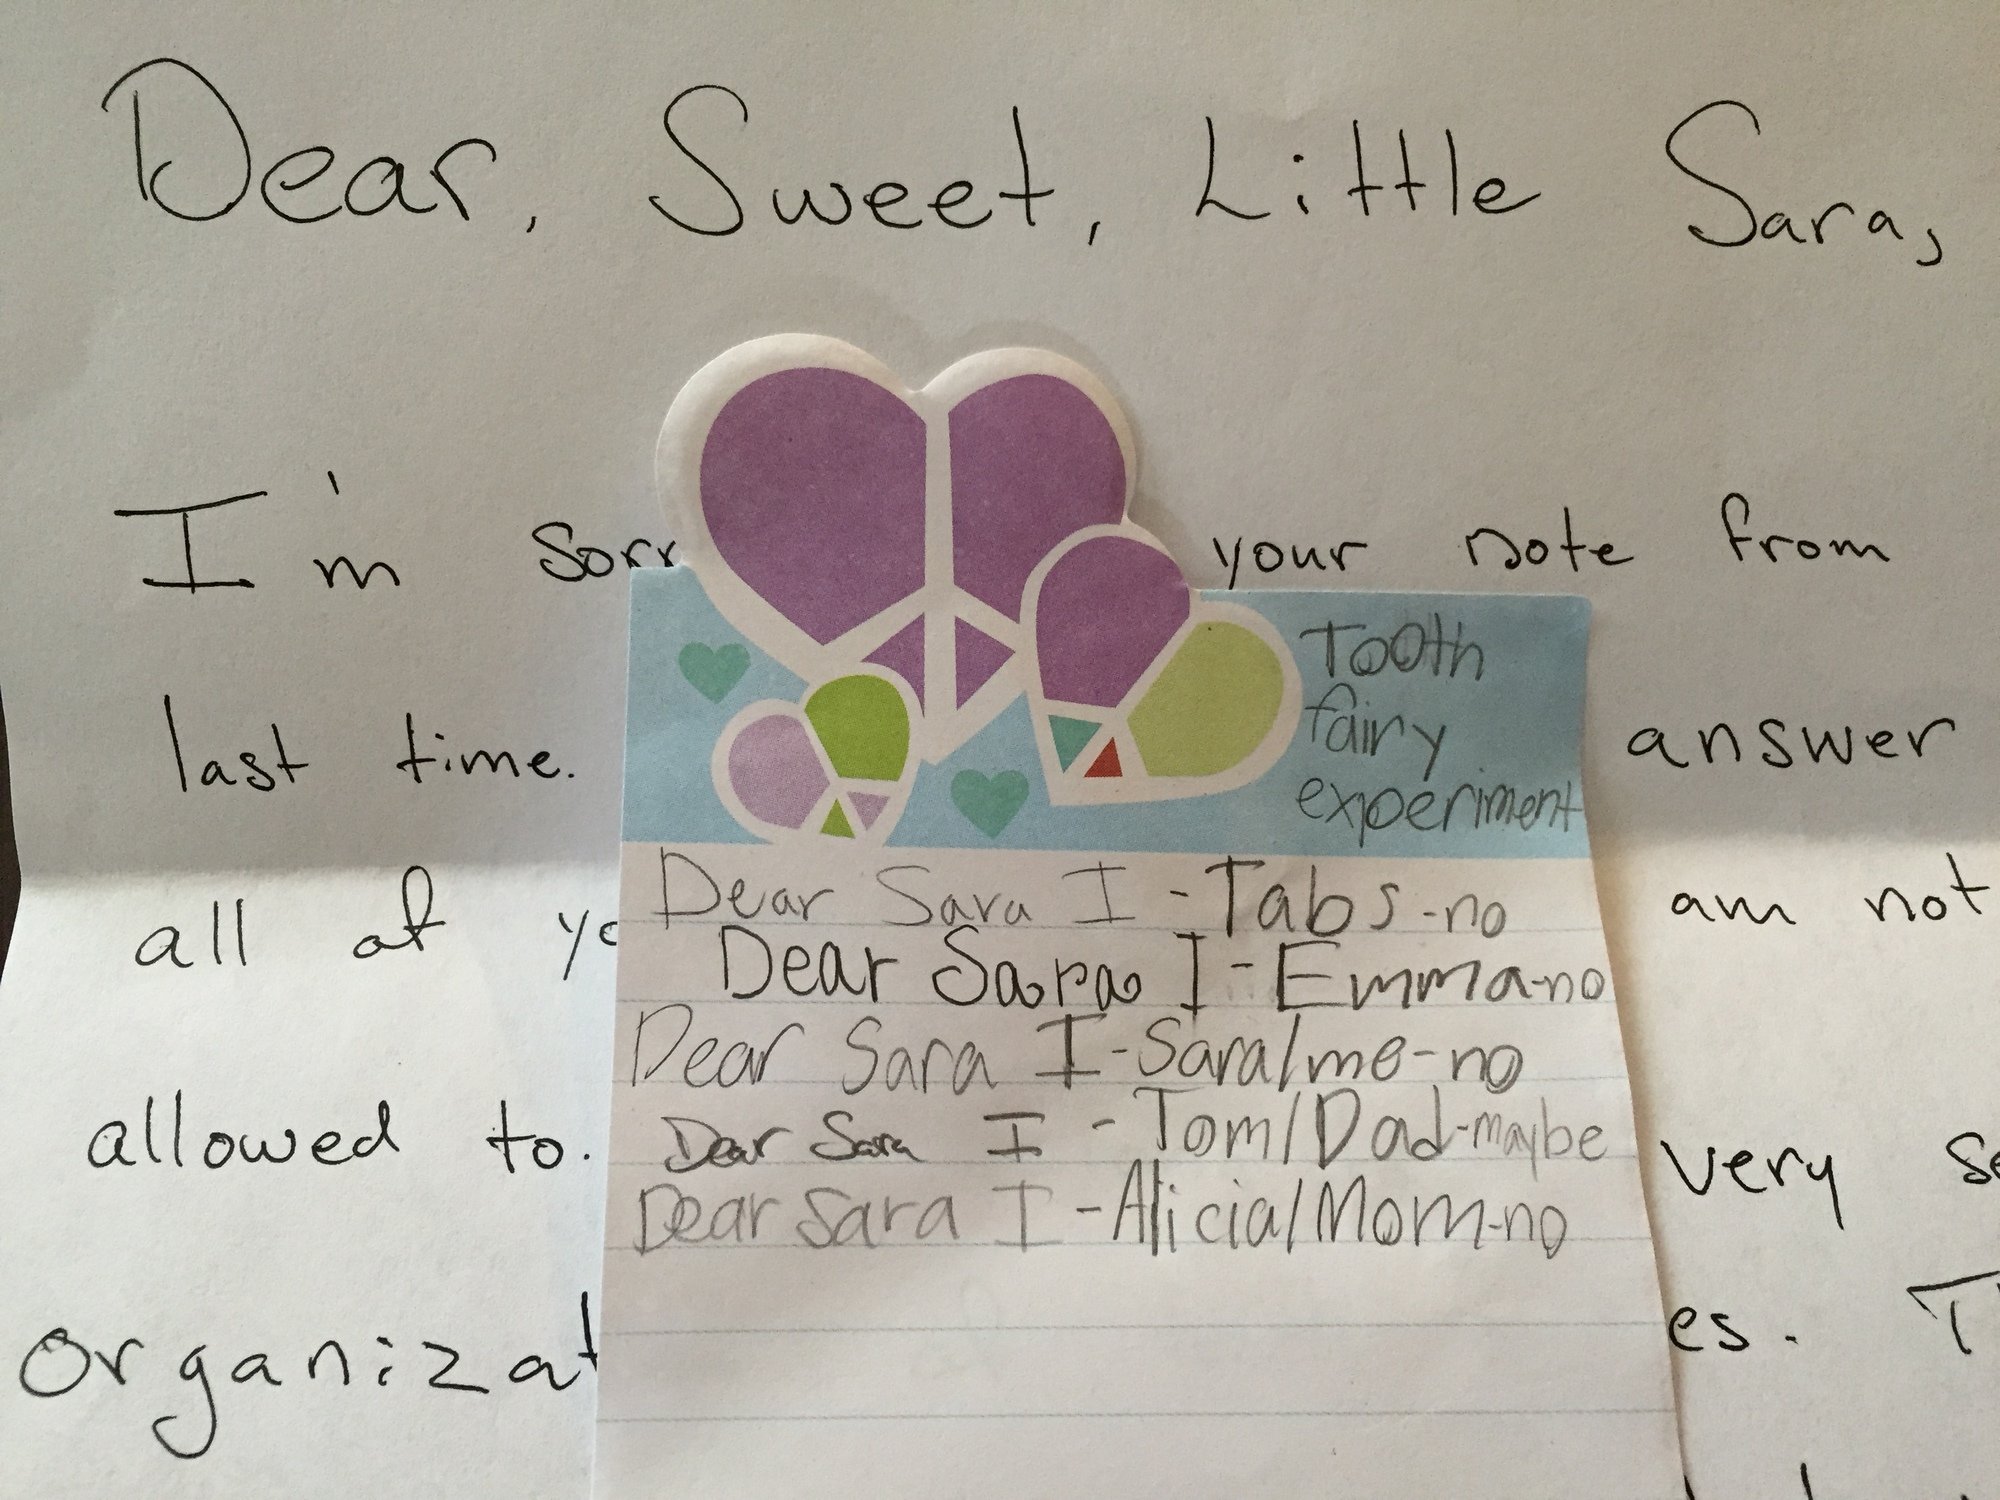 Dear, Sweet, Little Sara,
I'm sorr your note from
last time. answer
all of yo am not
allowed to. very se
organizat es. T
Tooth
fairy
experiment
Dear Sara I - Tabs - no
Dear Sara I - Emma-no
Dear Sara I - Sara/me - no
Dear Sara I - Tom/Dad-maybe
Dear Sara I - Alicia/Mom-no